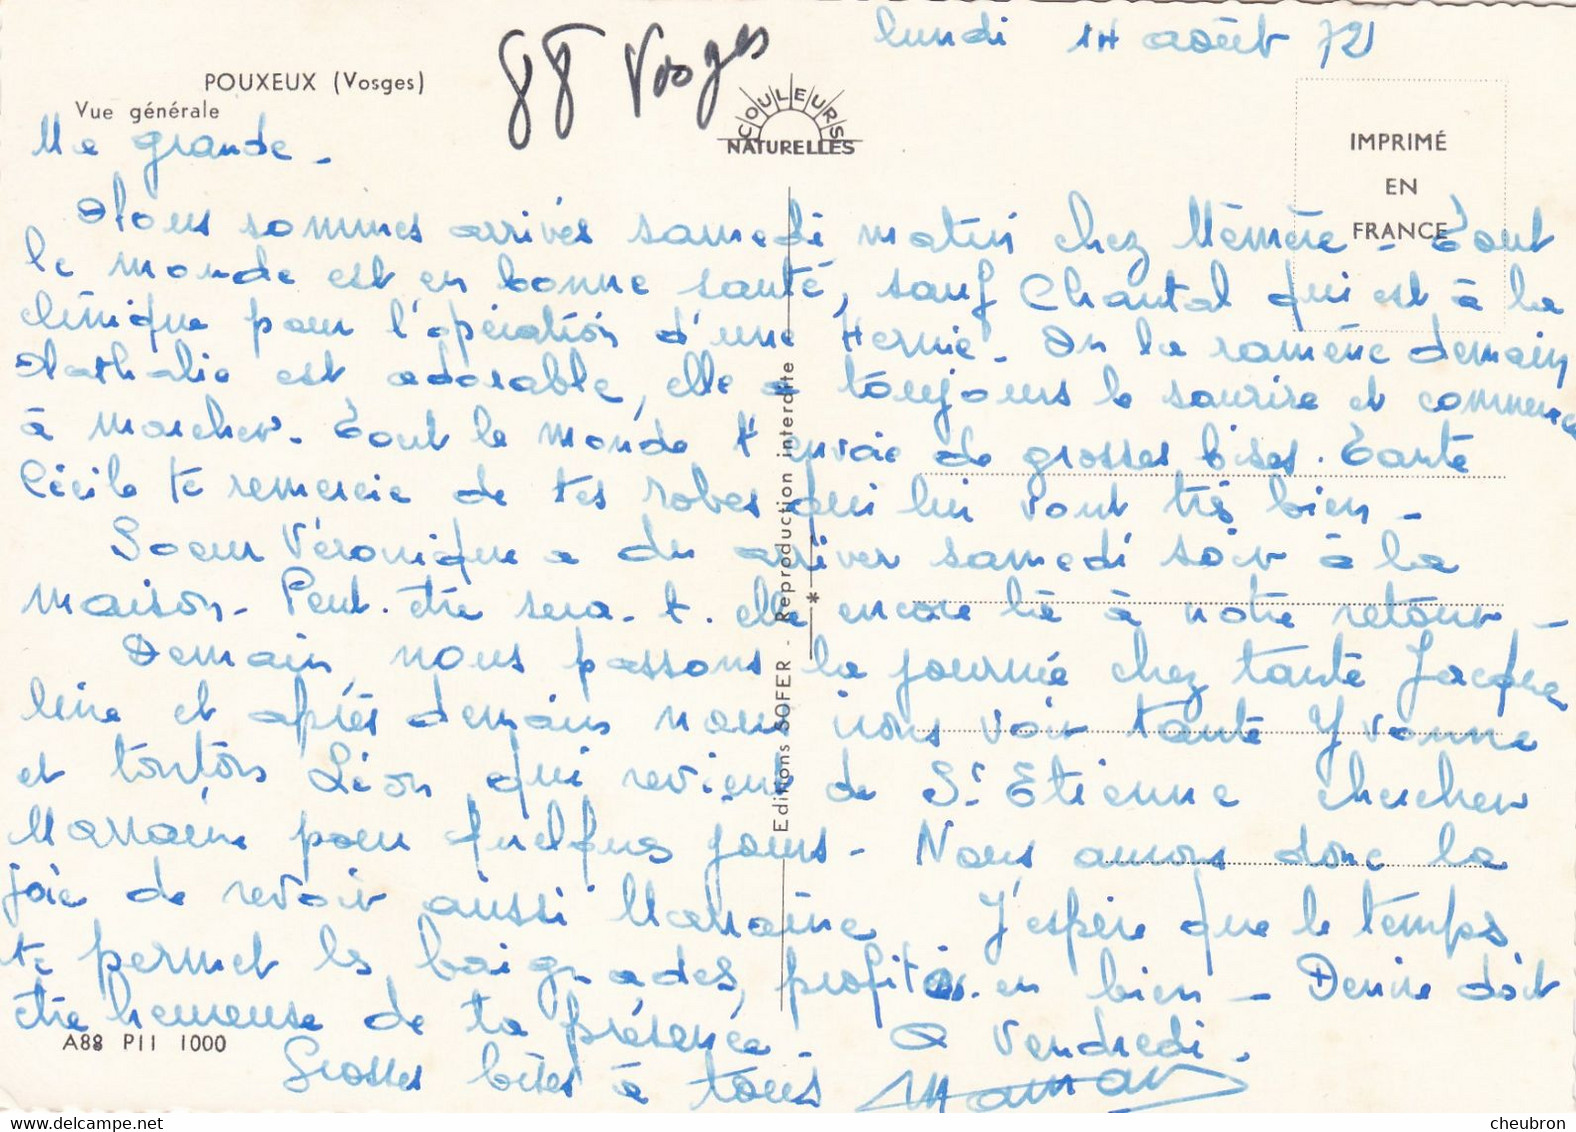 lundi 14 août 72
88 Vosges
POUXEUX (Vosges)
Vue générale
COULEURS
NATURELLES
IMPRIMÉ
EN
FRANCE
Ma grande -
Nous sommes arrivés samedi matin chez Mémère - Tout
le monde est en bonne santé, sauf Chantal qui est à la
clinique pour l'opération d'une Hernie - On la ramène demain
Nathalie est adorable, elle a toujours le sourire et commence
à marcher - Tout le monde t'envoie de grosses bises. Tante
Cécile te remercie de tes robes qui lui vont très bien -
Soeur Véronique a du arriver samedi soir à la
maison - Peut-être sera-t-elle encore là à notre retour -
Demain, nous passons la journée chez tante Jacque
line et après demain nous irons voir tante Yvonne
et tonton Léon qui revient de St Etienne chercher
Marraine pour quelques jours - Nous aurons donc la
joie de revoir aussi Marraine J'espère que le temps
te permet les baignades, profites-en bien - Denise doit
être heureuse de ta présence - A Vendredi -
Grosses bises à tous Maman
Editions SOFER - Reproduction interdite
*
A88 P11 1000
cheubron